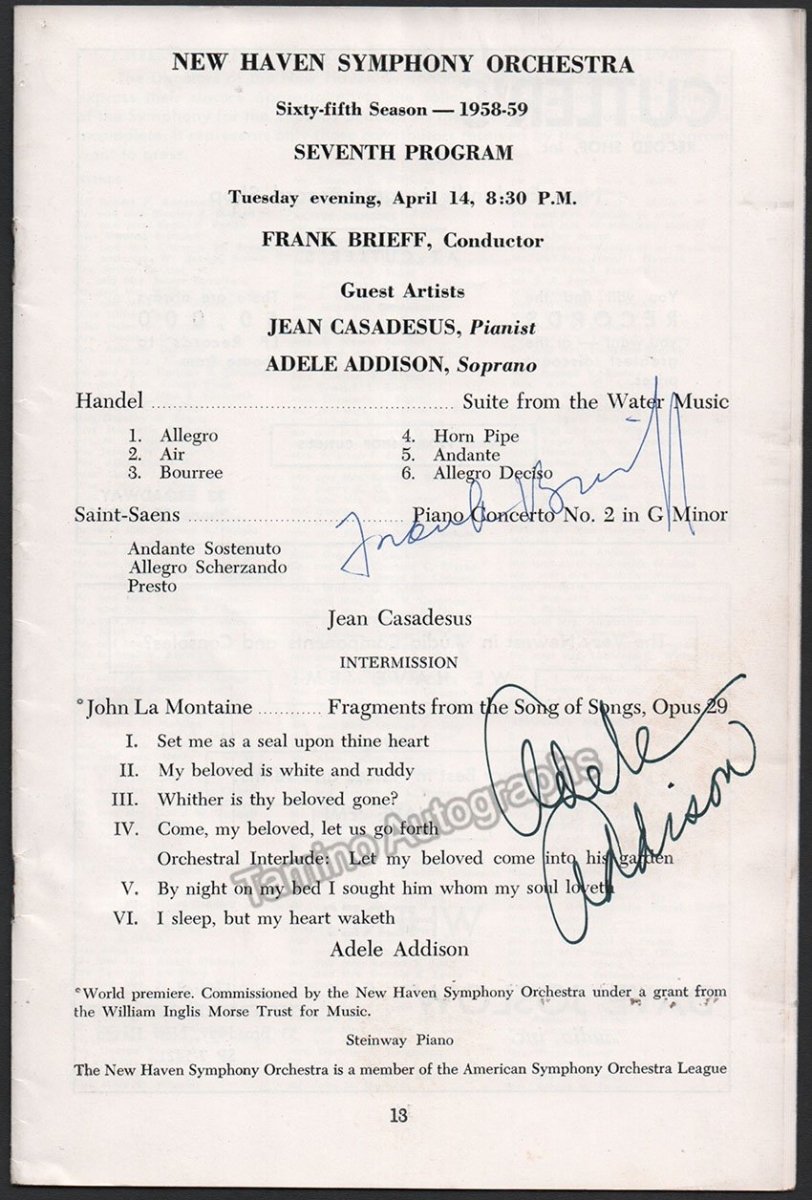 NEW HAVEN SYMPHONY ORCHESTRA
Sixty-fifth Season — 1958-59
SEVENTH PROGRAM
Tuesday evening, April 14, 8:30 P.M.
FRANK BRIEFF, Conductor
Guest Artists
JEAN CASADESUS, Pianist
ADELE ADDISON, Soprano
Handel ........ Suite from the Water Music
1. Allegro 4. Horn Pipe
2. Air 5. Andante
3. Bourree 6. Allegro Deciso
Frank Brieff
Saint-Saens ........ Piano Concerto No. 2 in G Minor
Andante Sostenuto
Allegro Scherzando
Presto
Jean Casadesus
INTERMISSION
*John La Montaine ........ Fragments from the Song of Songs, Opus 29
I. Set me as a seal upon thine heart
II. My beloved is white and ruddy
III. Whither is thy beloved gone?
IV. Come, my beloved, let us go forth
Orchestral Interlude: Let my beloved come into his garden
V. By night on my bed I sought him whom my soul loveth
VI. I sleep, but my heart waketh
Adele
Addison
Tamino Autographs
Adele Addison
*World premiere. Commissioned by the New Haven Symphony Orchestra under a grant from
the William Inglis Morse Trust for Music.
Steinway Piano
The New Haven Symphony Orchestra is a member of the American Symphony Orchestra League
13